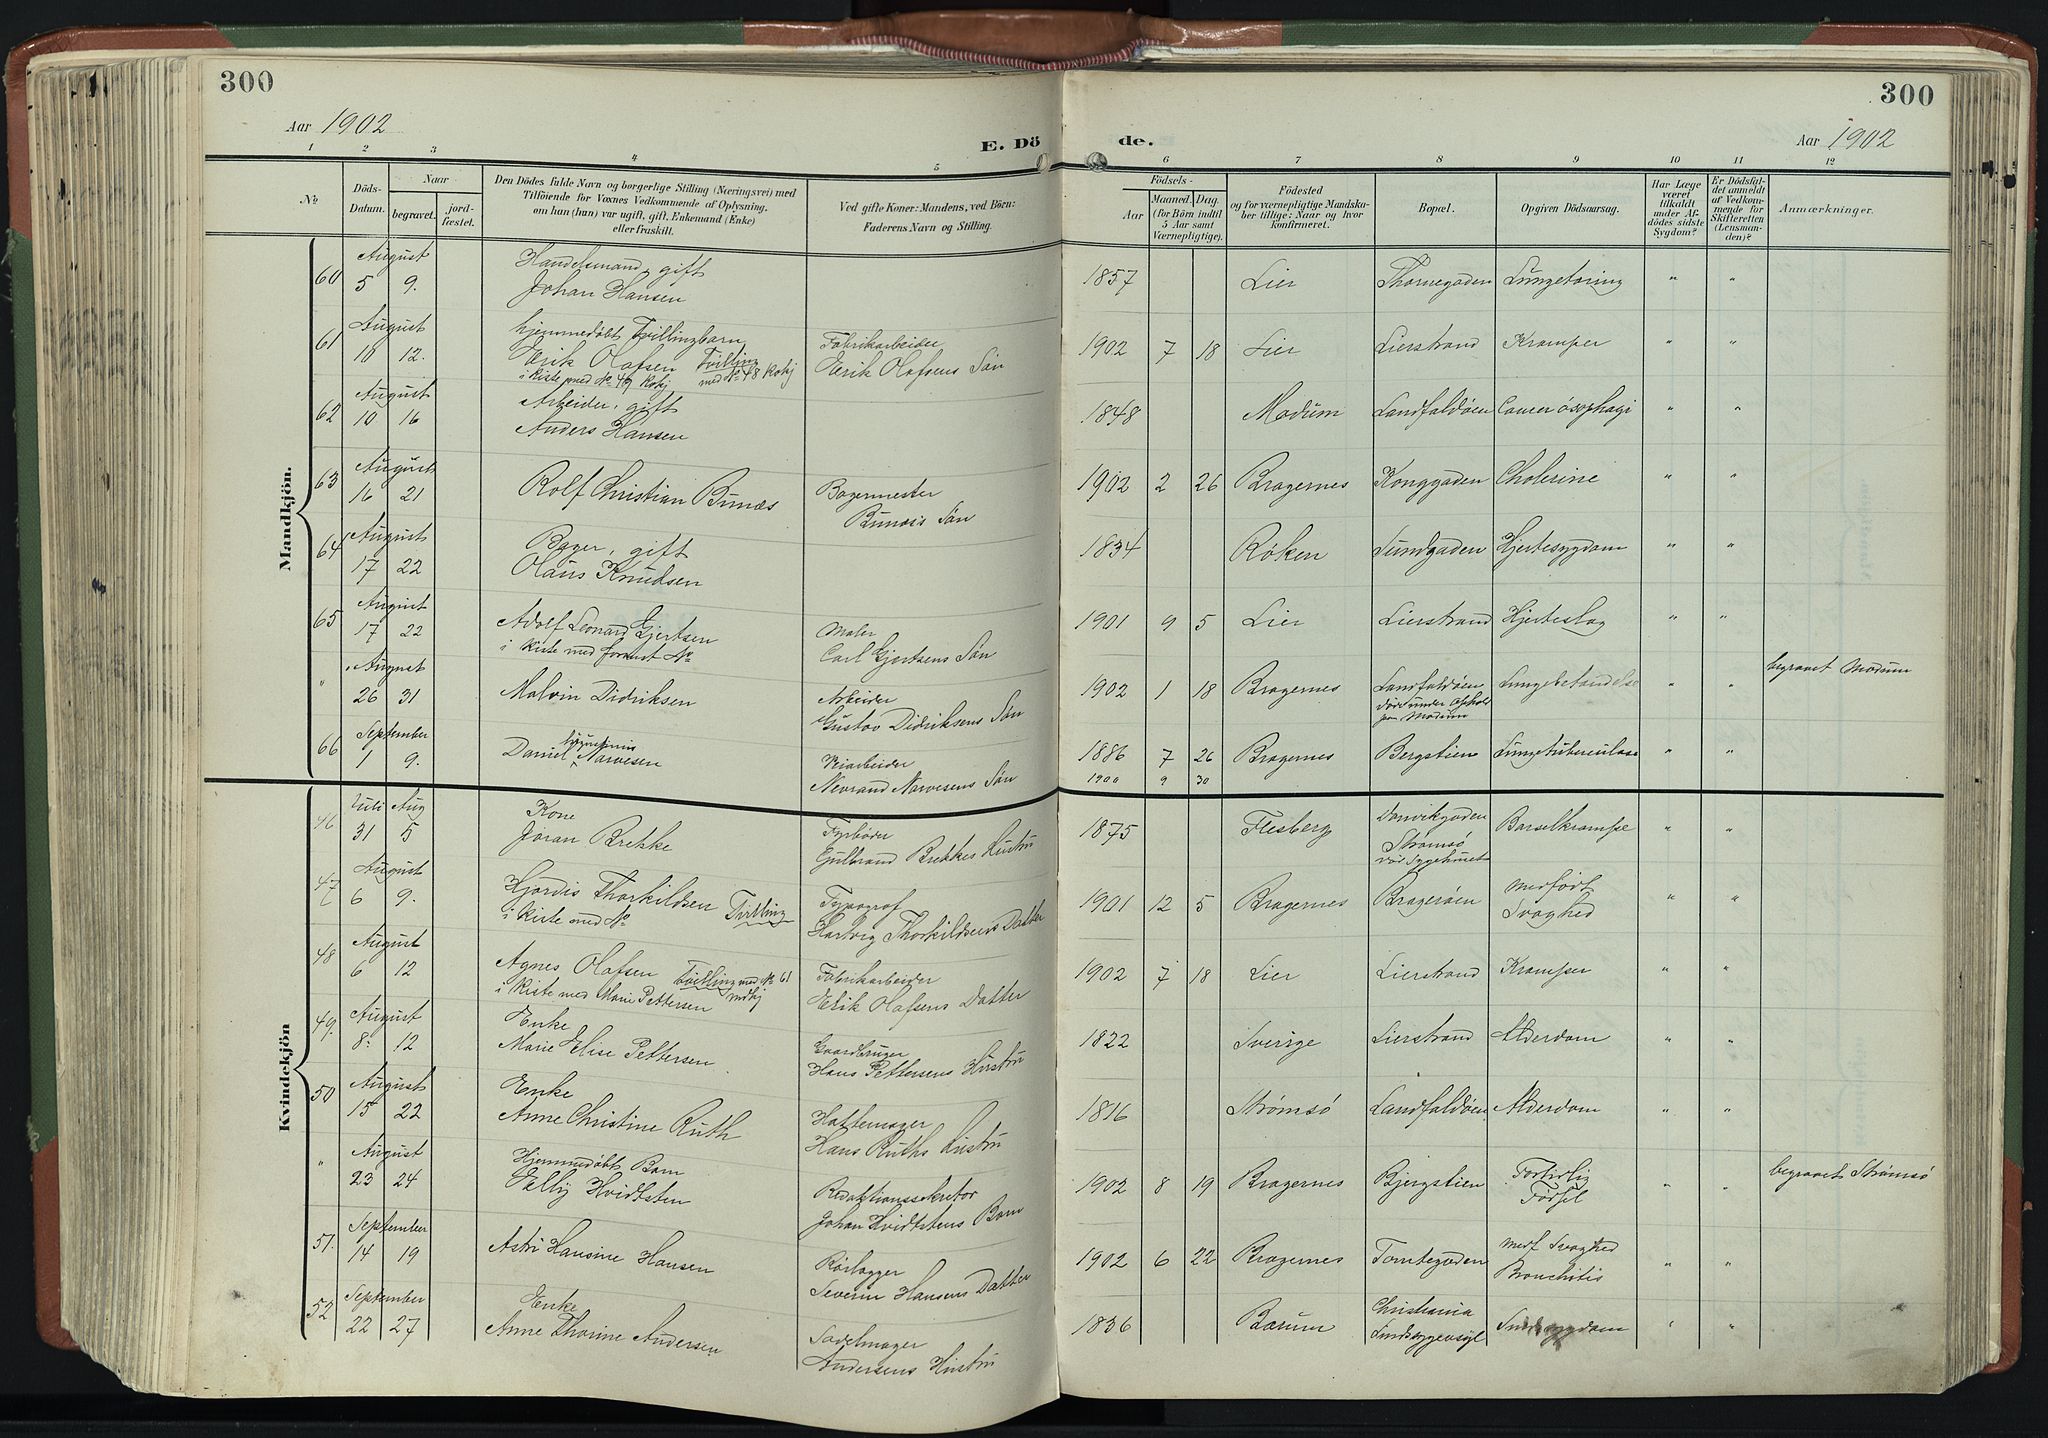 300
300
Aar 1902
E. Dö
de.
Aar 1902
1 2 3 4 5 6 7 8 9 10 11 12
No
Döds-
Datum.
Naar
begravet.
jord-
fæstet.
Den Dödes fulde Navn og borgerlige Stilling (Næringsvei) med
Tilföiende for Voxnes Vedkommende af Oplysning,
om han (hun) var ugift, gift, Enkemand (Enke)
eller fraskilt.
Ved gifte Koner: Mandens, ved Börn:
Faderens Navn og Stilling.
Födsels-
Aar
Maaned. Dag.
(for Börn indtil
5 Aar samt
Værnepligtige).
Födested
og for værnepligtige Mandska-
ber tillige: Naar og hvor
konfirmeret.
Bopæl.
Opgiven Dödsaarsag.
Har Læge
været
tilkaldt
under Af-
dödes sidste
Sygdom?
Er Dödsfal-
det anmeldt
af Vedkom-
mende for
Skifteretten
(Lensman-
den)?
Anmærkninger.
Mandkjön.
60 August Handelsmand, gift
5 9. Johan Hansen 1857 Lier Thornegaden Lungetæring " "
61 August hjemmedøbt Tvillingbarn Fabrikarbeider
10 12. Erik Olafsen Tvilling Erik Olafsens Søn 1902 7 18 Lier Lierstrand Kramper " "
i Kiste med No 49 Kvkj med No 48 Kvkj
62 August Arbeider, gift
10 16 Anders Hansen 1848 Modum Landfaldøen Cancer øsophagi " "
63 August
16 21 Rolf Christian Bunæs Bagermester Bunæs's Søn 1902 2 26 Bragernes Konggaden Cholerine " "
64 August Bager, gift
17 22 Olaus Knudsen 1834 Røken Sundgaden Hjertesygdom " "
65 August
17 22 Adolf Leonard Gjertsen Maler
i Kiste med forrust No Carl Gjertsens Søn 1901 9 5 Lier Lierstrand Hjerteslag " "
" August
26 31 Malvin Didriksen Arbeider Gustav Didriksens Søn 1902 1 18 Bragernes Landfaldøen Lungebetændelse " " begravet Modum
død under Ophold
paa Modum
66 September
1 9. Daniel Narvesen Veiarbeider Nevrand Narvesens Søn 1886 7 26 Bragernes Bergstien Lungetuberculose " "
1900 9 30
Kvindekjön
46 Juli Aug Kone
31 5 Jøran Brekke Fyrbøder Gulbrand Brekkes Hustru 1875 Flesberg Danvikgaden Barselkrampe " "
Strømsø
død Sygehuset
47 August
6 9. Hjørdis Thorkildsen Tvilling Typograf
i Kiste med No Hartvig Thorkildsens Datter 1901 12 5 Bragernes Bragerøen Medfødt " "
Svaghed
48 August
6 12 Agnes Olafsen Tvilling med No 61 Mdkj Fabrikarbeider
i Kiste med Marie Pettersen Erik Olafsens Datter 1902 7 18 Lier Lierstrand Kramper " "
49. August Enke
8. 12 Marie Elise Pettersen Gaardbruger Hans Pettersens Hustru 1822 Sverige Lierstrand Alderdom " "
50 August Enke
15 22 Anne Christine Ruth Hattemager Hans Ruths Hustru 1816 Strømsø Landfaldøen Alderdom " "
" August Hjemmedøbt Barn
23 24 Elly Hvidtsten Redaktionssekretær Johan Hvidtstens Barn 1902 8 19 Bragernes Bjergstien Fortidlig " " begravet Strømsø
Førsel
51. September
14 19 Astri Hansine Hansen Rørlægger Severin Hansens Datter 1902 6 22 Bragernes Tomtegaden Medf Svaghed " "
Bronchitis
52 September Enke
22 27 Anne Thorine Andersen Sadelmager Andersens Hustru 1836 Bærum Christiania Sindssygdom " "
Sindssygeasyl